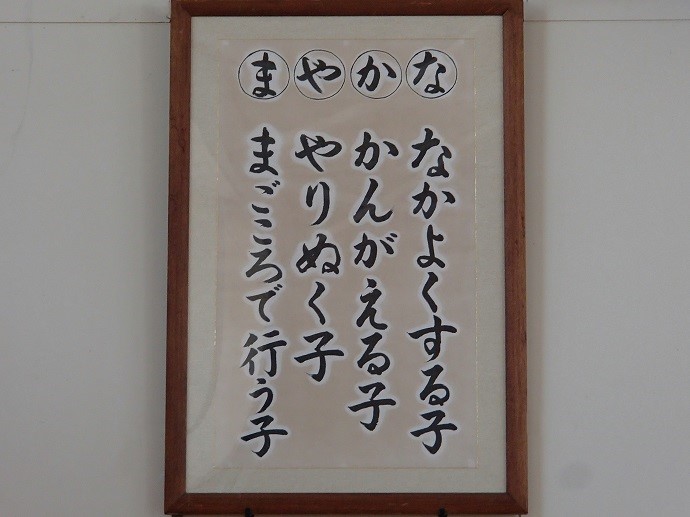 なかやま
なかよくする子
かんがえる子
やりぬく子
まごころで行う子